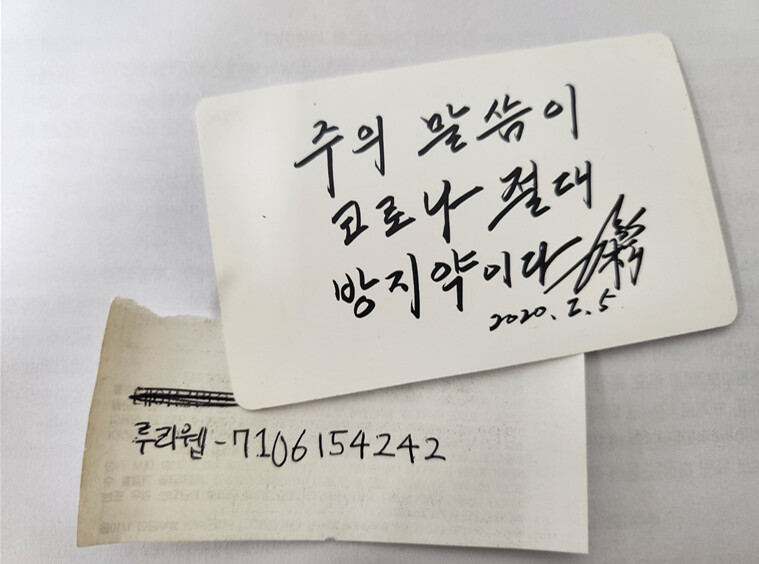 주의 말씀이
코로나 절대
방지약이다
2020. 2. 5
루리웹-7106154242